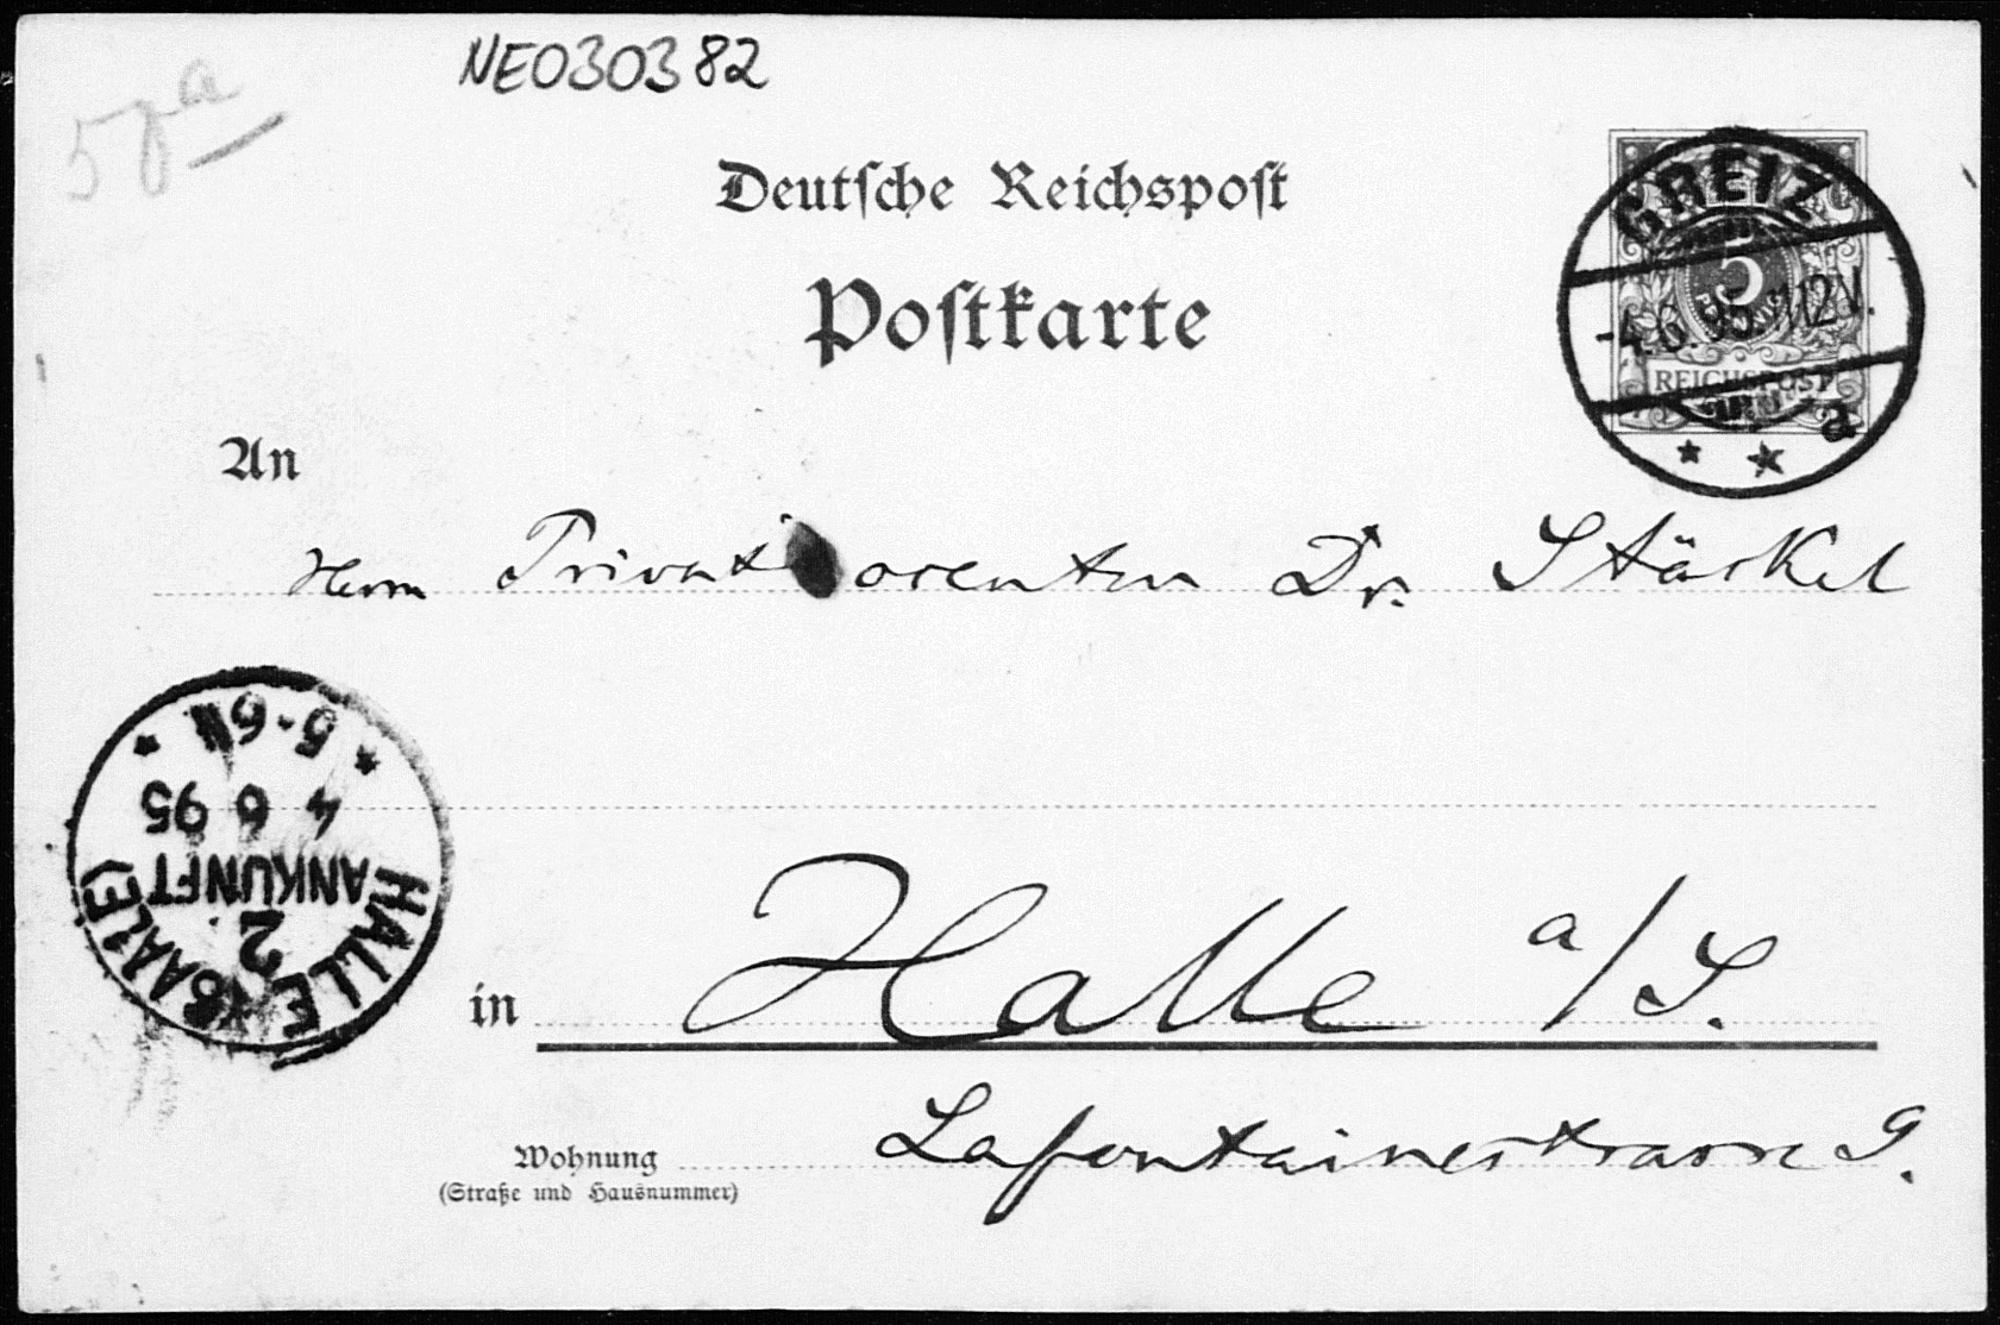 NE030382
Deutsche Reichspost
Postkarte
GREIZ
5
-4.6.95. 11-12V.
REICHSPOST
a
An
Herrn Privatdocenten Dr. Stäckel
HALLE (SAALE)
2
ANKUNFT
4 6 95
5-6N
in Halle a/S.
Wohnung Lafontainestrasse 9.
(Straße und Hausnummer)